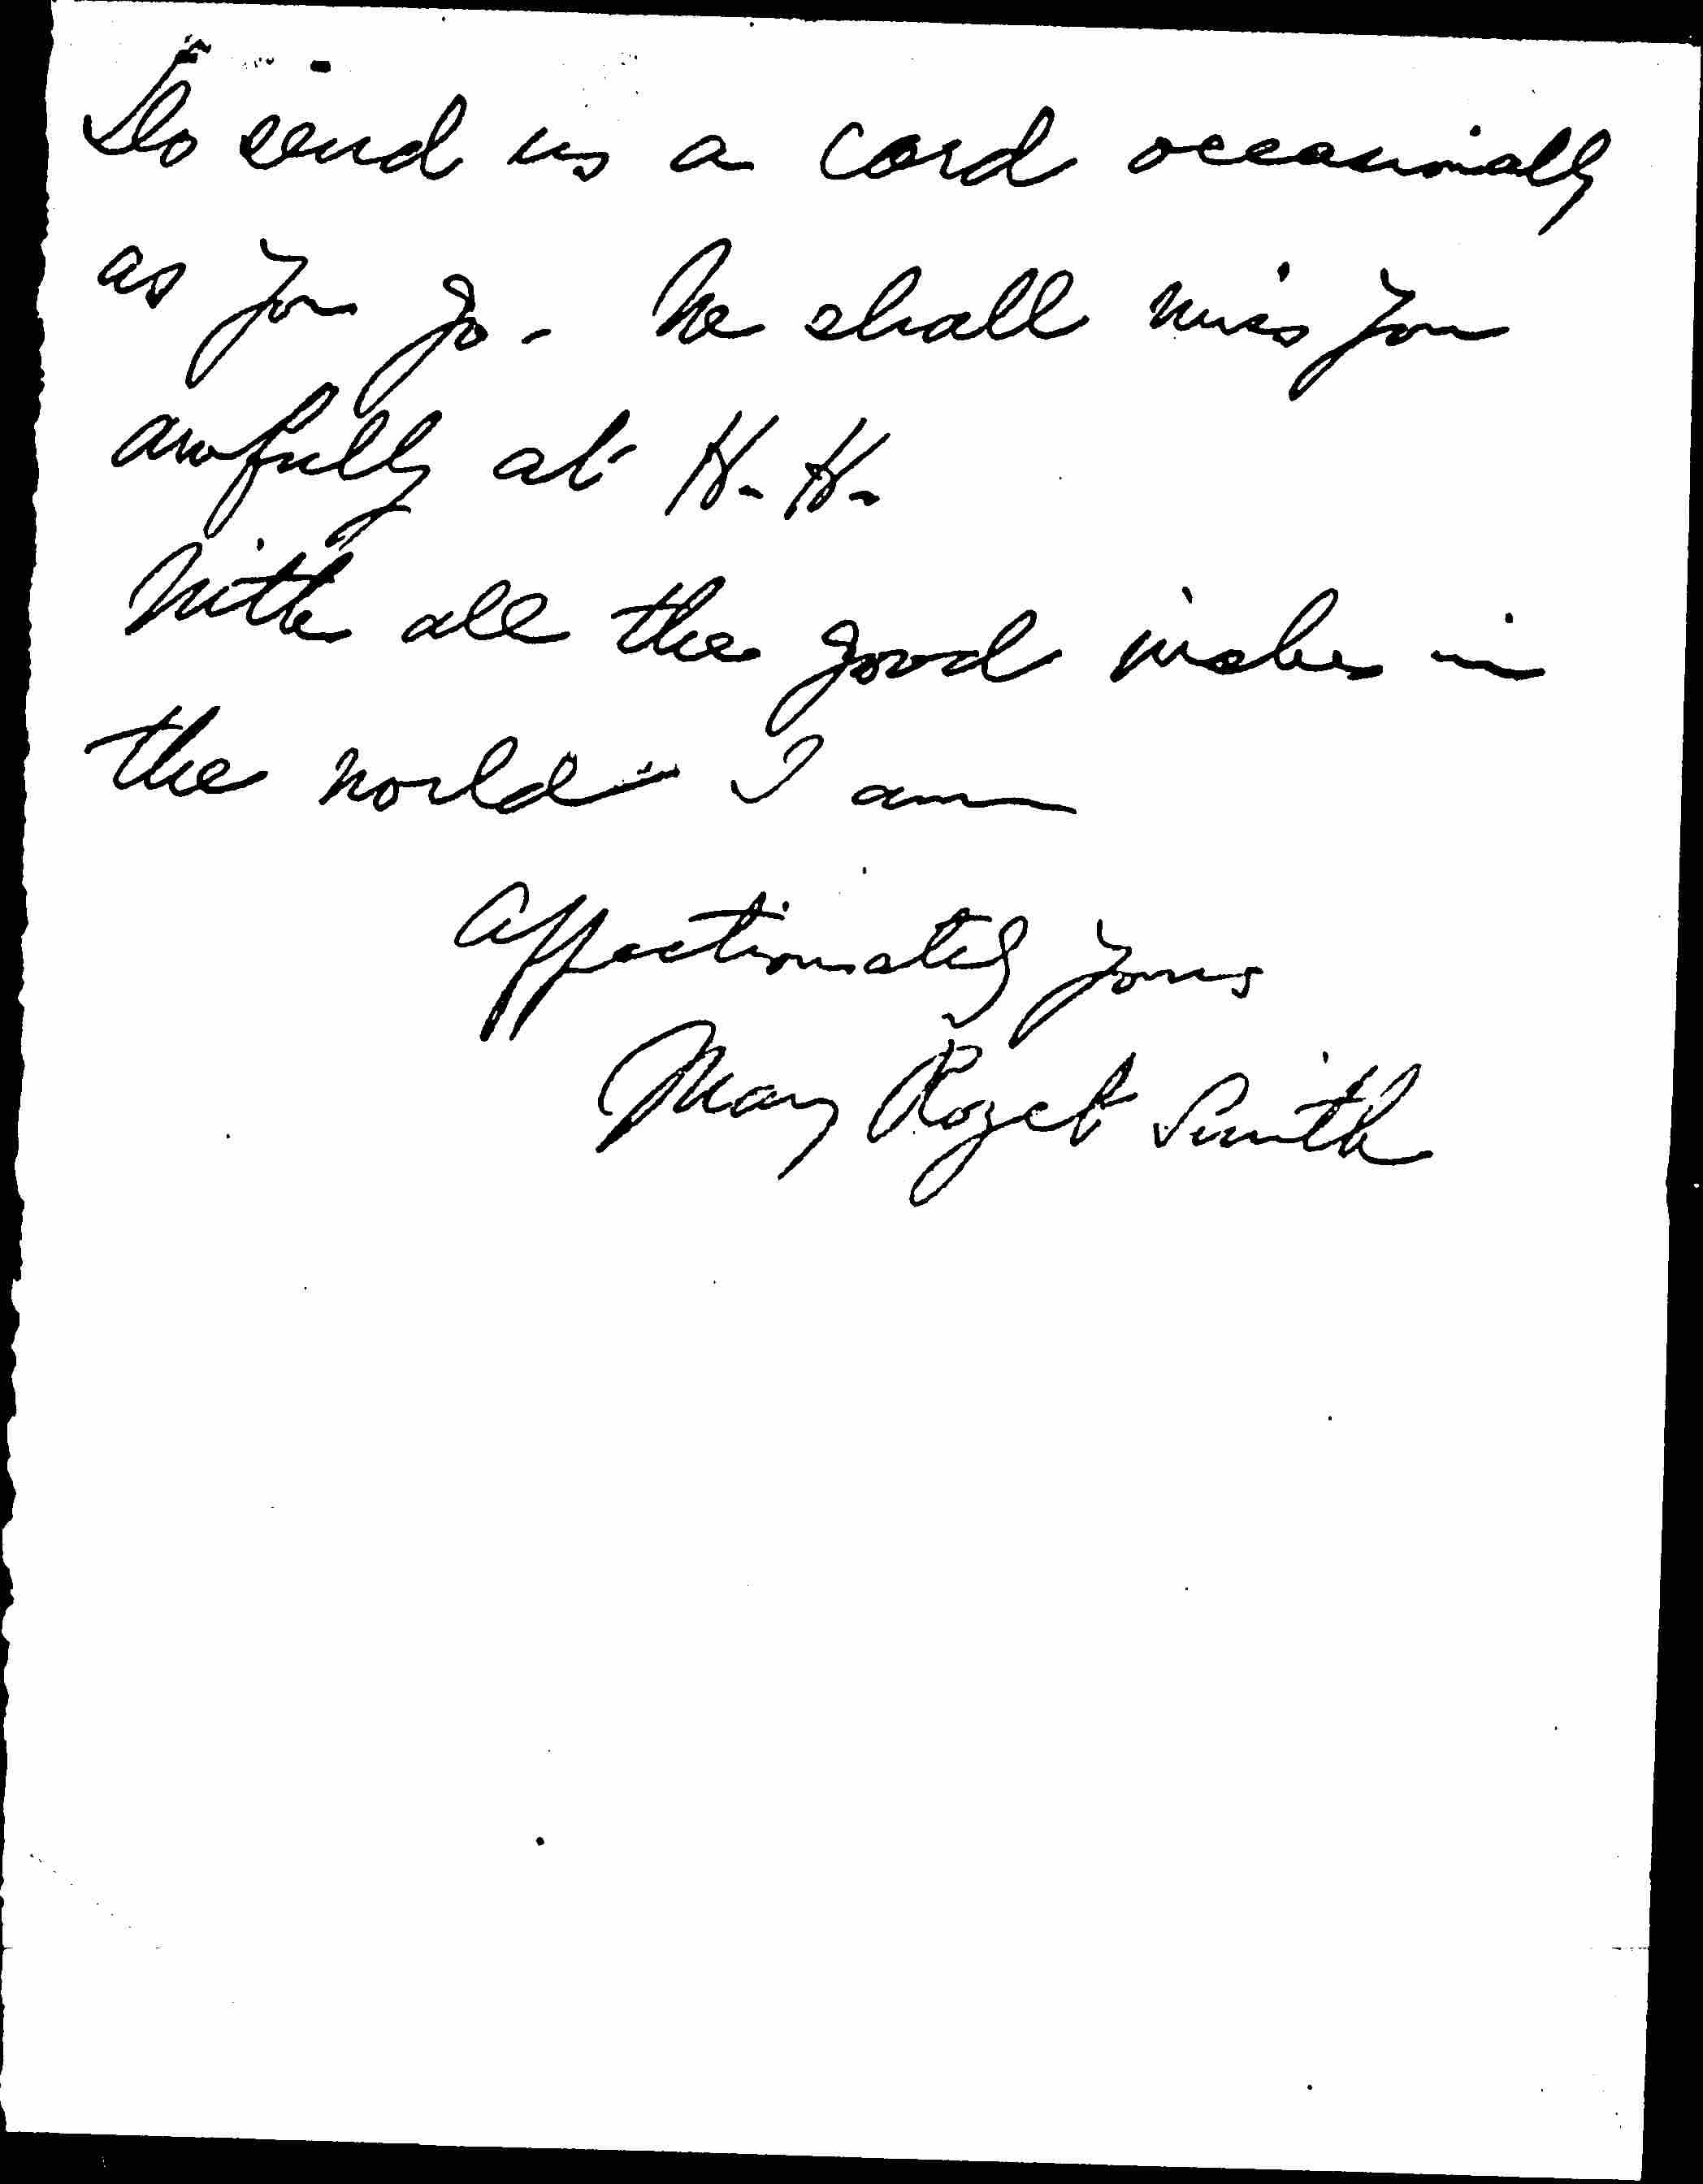 Do send us a card occasionally
as you go - We shall miss you
awfully at H- H-
With all the good wishes in
the world - I am
Affectionately yours
Mary Rozet Smith